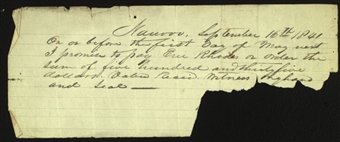 Nauvoo, September 16th 1841
On or before the first Day of May next
I promise to pay Eric Rhodes or order the
sum of five hundred and thirty five
dollars. Value Recd. Witness my hand
and seal